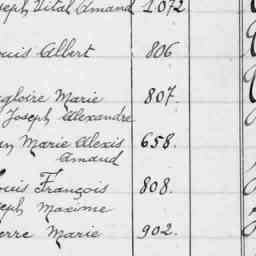 seph Vital Amand 1.072
ouis Albert 806
gloire Marie 807.
Joseph Alexandre
Marie Alexis 658.
Amand
ouis François 808.
seph Maxime
erre Marie 902.